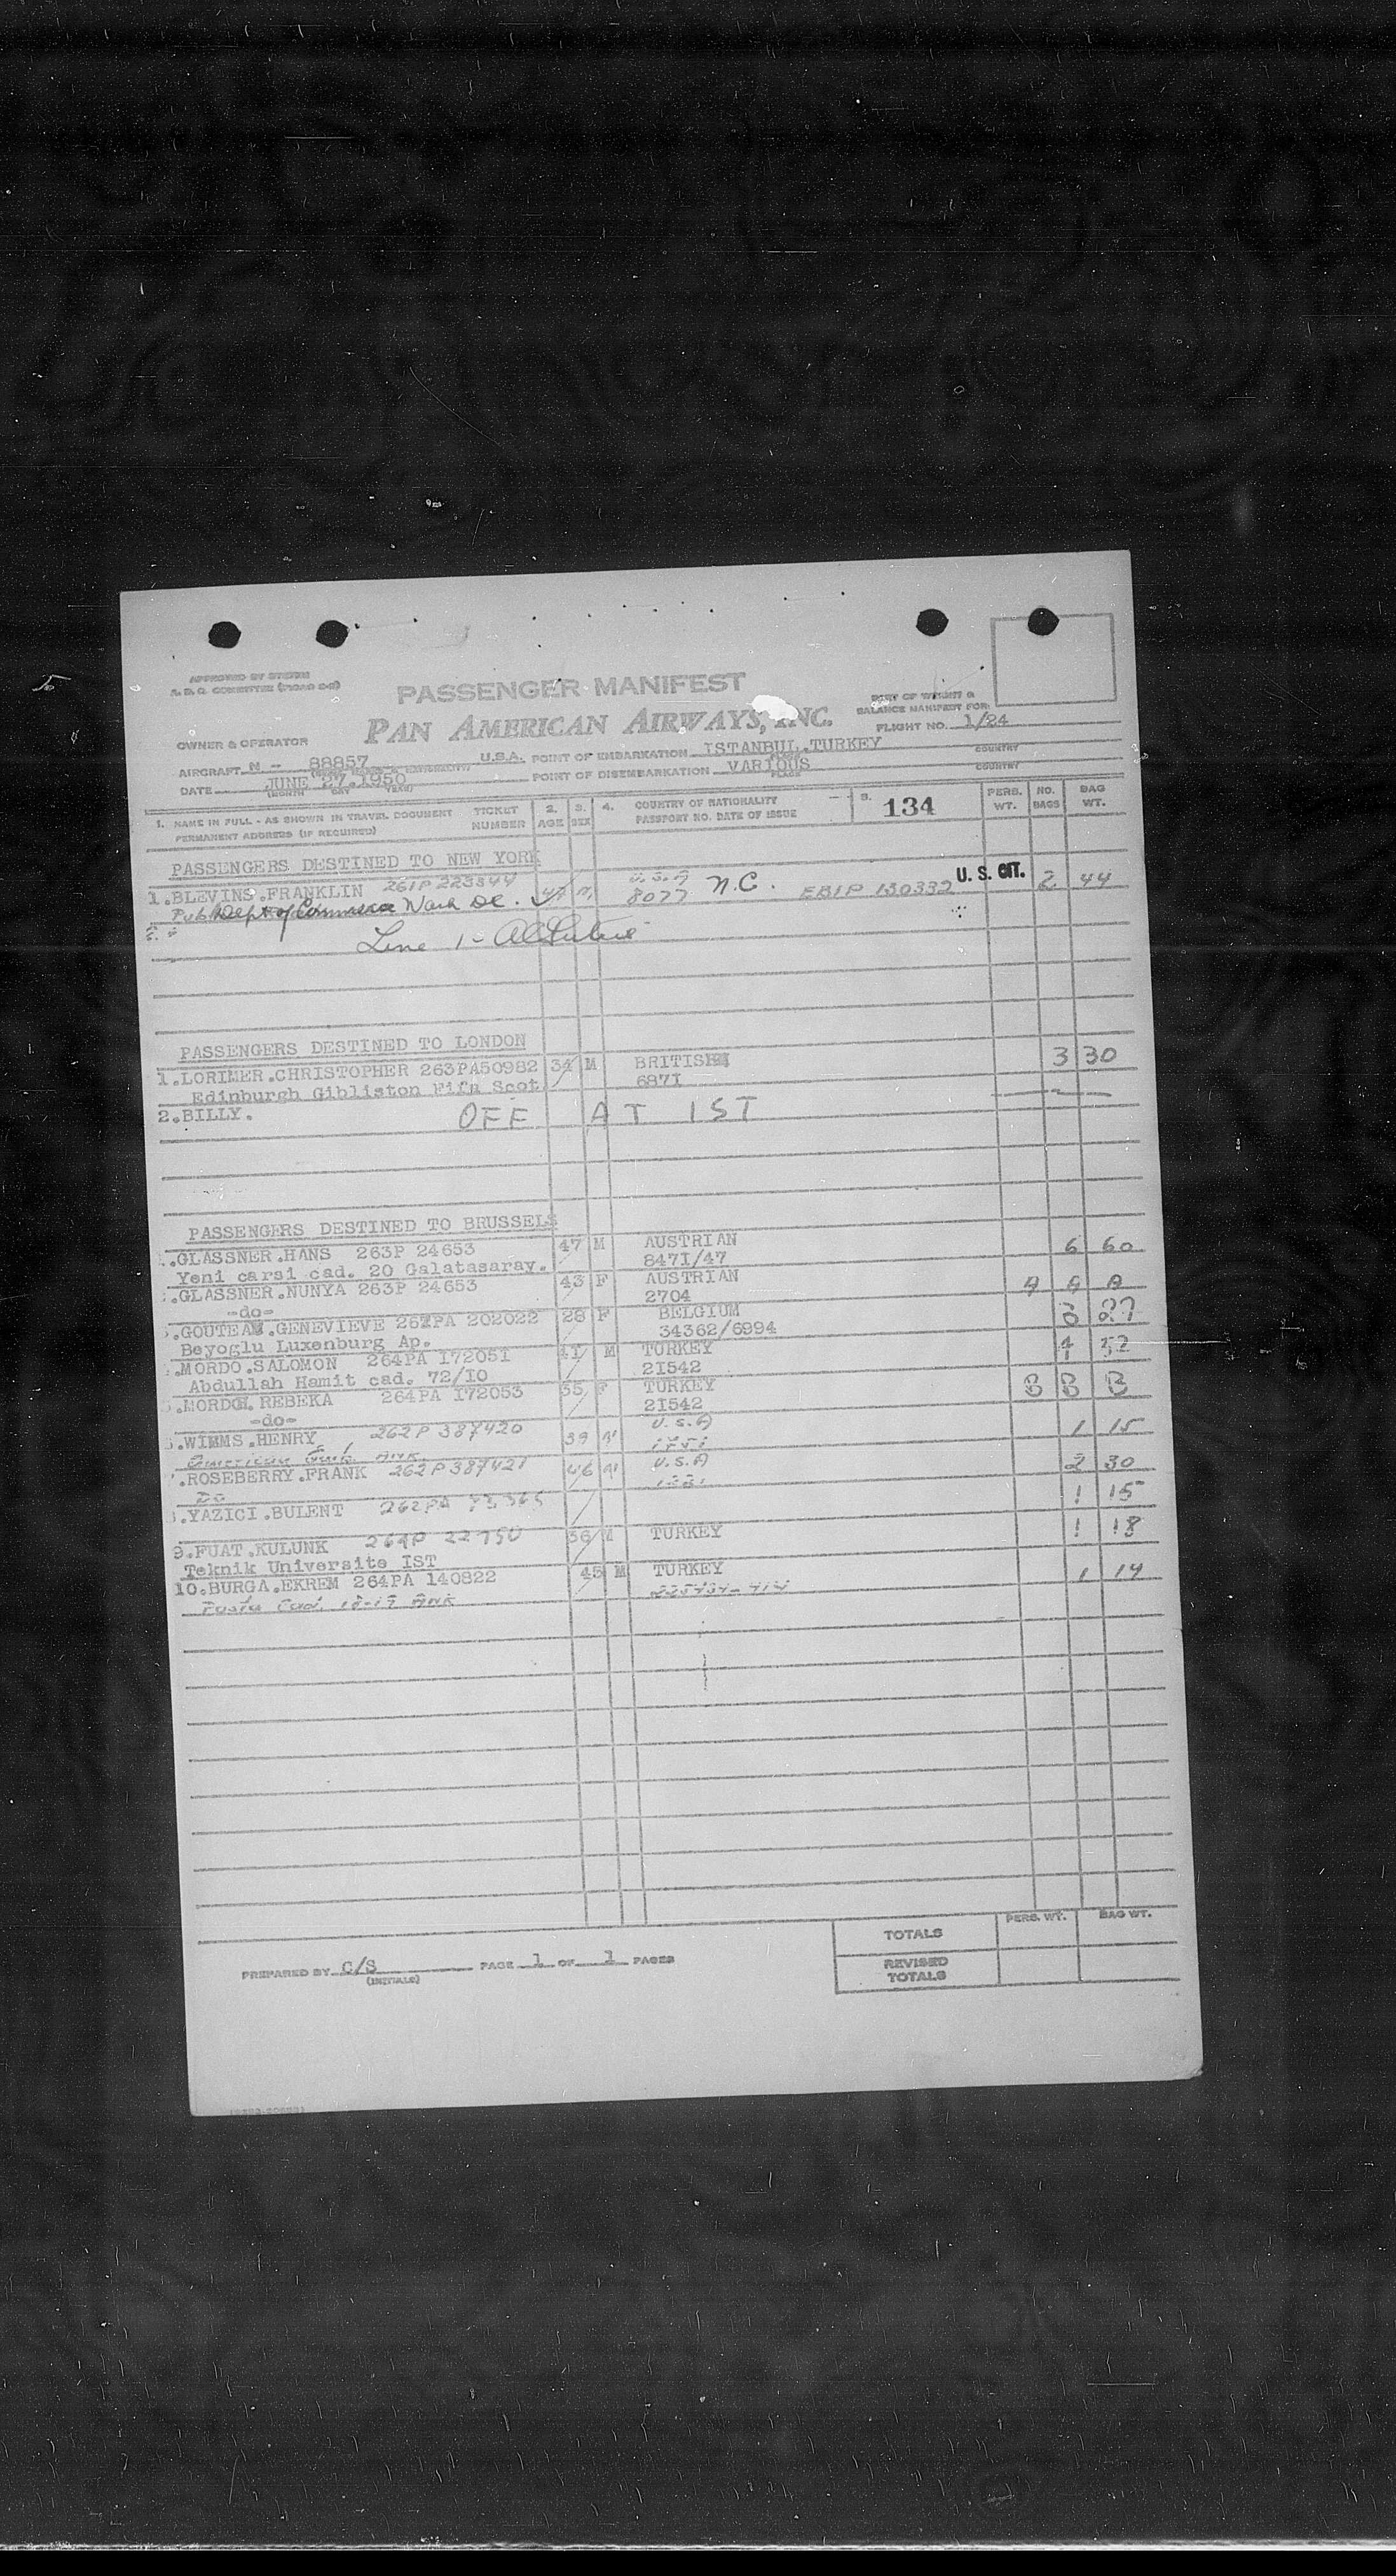 5
APPROVED BY SYSTEM
PASSENGER MANIFEST
PAN AMERICAN AIRWAYS, INC.
PART OF WEIGHT &
BALANCE MANIFEST FOR:
FLIGHT NO. 1/24
OWNER & OPERATOR
AIRCRAFT N - 88857 U.S.A. POINT OF EMBARKATION ISTANBUL.TURKEY COUNTRY
DATE JUNE 27.1950 POINT OF DISEMBARKATION VARIOUS COUNTRY
(MONTH DAY YEAR) PLACE
1. NAME IN FULL - AS SHOWN IN TRAVEL DOCUMENT TICKET NUMBER 2. AGE 3. SEX 4. COUNTRY OF NATIONALITY 5. 134 PERS. WT. NO. BAGS BAG WT.
PERMANENT ADDRESS (IF REQUIRED) PASSPORT NO. DATE OF ISSUE
PASSENGERS DESTINED TO NEW YORK
1.BLEVINS.FRANKLIN 261P 223844 M U.S.A N.C. EBIP 130332 U. S. CIT. 2 44
Dept of Commerce Wash DC. 8077
Line 1 -
PASSENGERS DESTINED TO LONDON
1.LORIMER.CHRISTOPHER 263PA50982 34 M BRITISH 3 30
Edinburgh Gibliston Fifn Scot 687I
2.BILLY. OFF AT IST
PASSENGERS DESTINED TO BRUSSELS
.GLASSNER.HANS 263P 24653 47 M AUSTRIAN 6 60
Yeni carsi cad. 20 Galatasaray. 847I/47
.GLASSNER.NUNYA 263P 24653 43 F AUSTRIAN A A A
-do- 2704
.GOUTEAW.GENEVIEVE 262PA 202022 28 F BELGIUM 3 27
Beyoglu Luxenburg Ap. 34362/6994
.MORDO.SALOMON 264PA I7205I 4I M TURKEY
Abdullah Hamit cad. 72/IO 2I542
.MORDO. REBEKA 264PA I72053 35 F TURKEY B B B
-do- 2I542
.WIMMS.HENRY 262P 387420 39 M U.S.A 1 15
American
.ROSEBERRY.FRANK 262P 387421 46 M U.S.A 2 30
Do
.YAZICI.BULENT 262PA 1 15
9.FUAT.KULUNK 264P 22750 36 M TURKEY 1 18
Teknik Universite IST
10.BURGA.EKREM 264PA 140822 45 M TURKEY 1 14
Posta Cad. ANK
PERS. WT. BAG WT.
TOTALS
PREPARED BY C/S PAGE 1 OF 1 PAGES
(INITIALS)
REVISED TOTALS